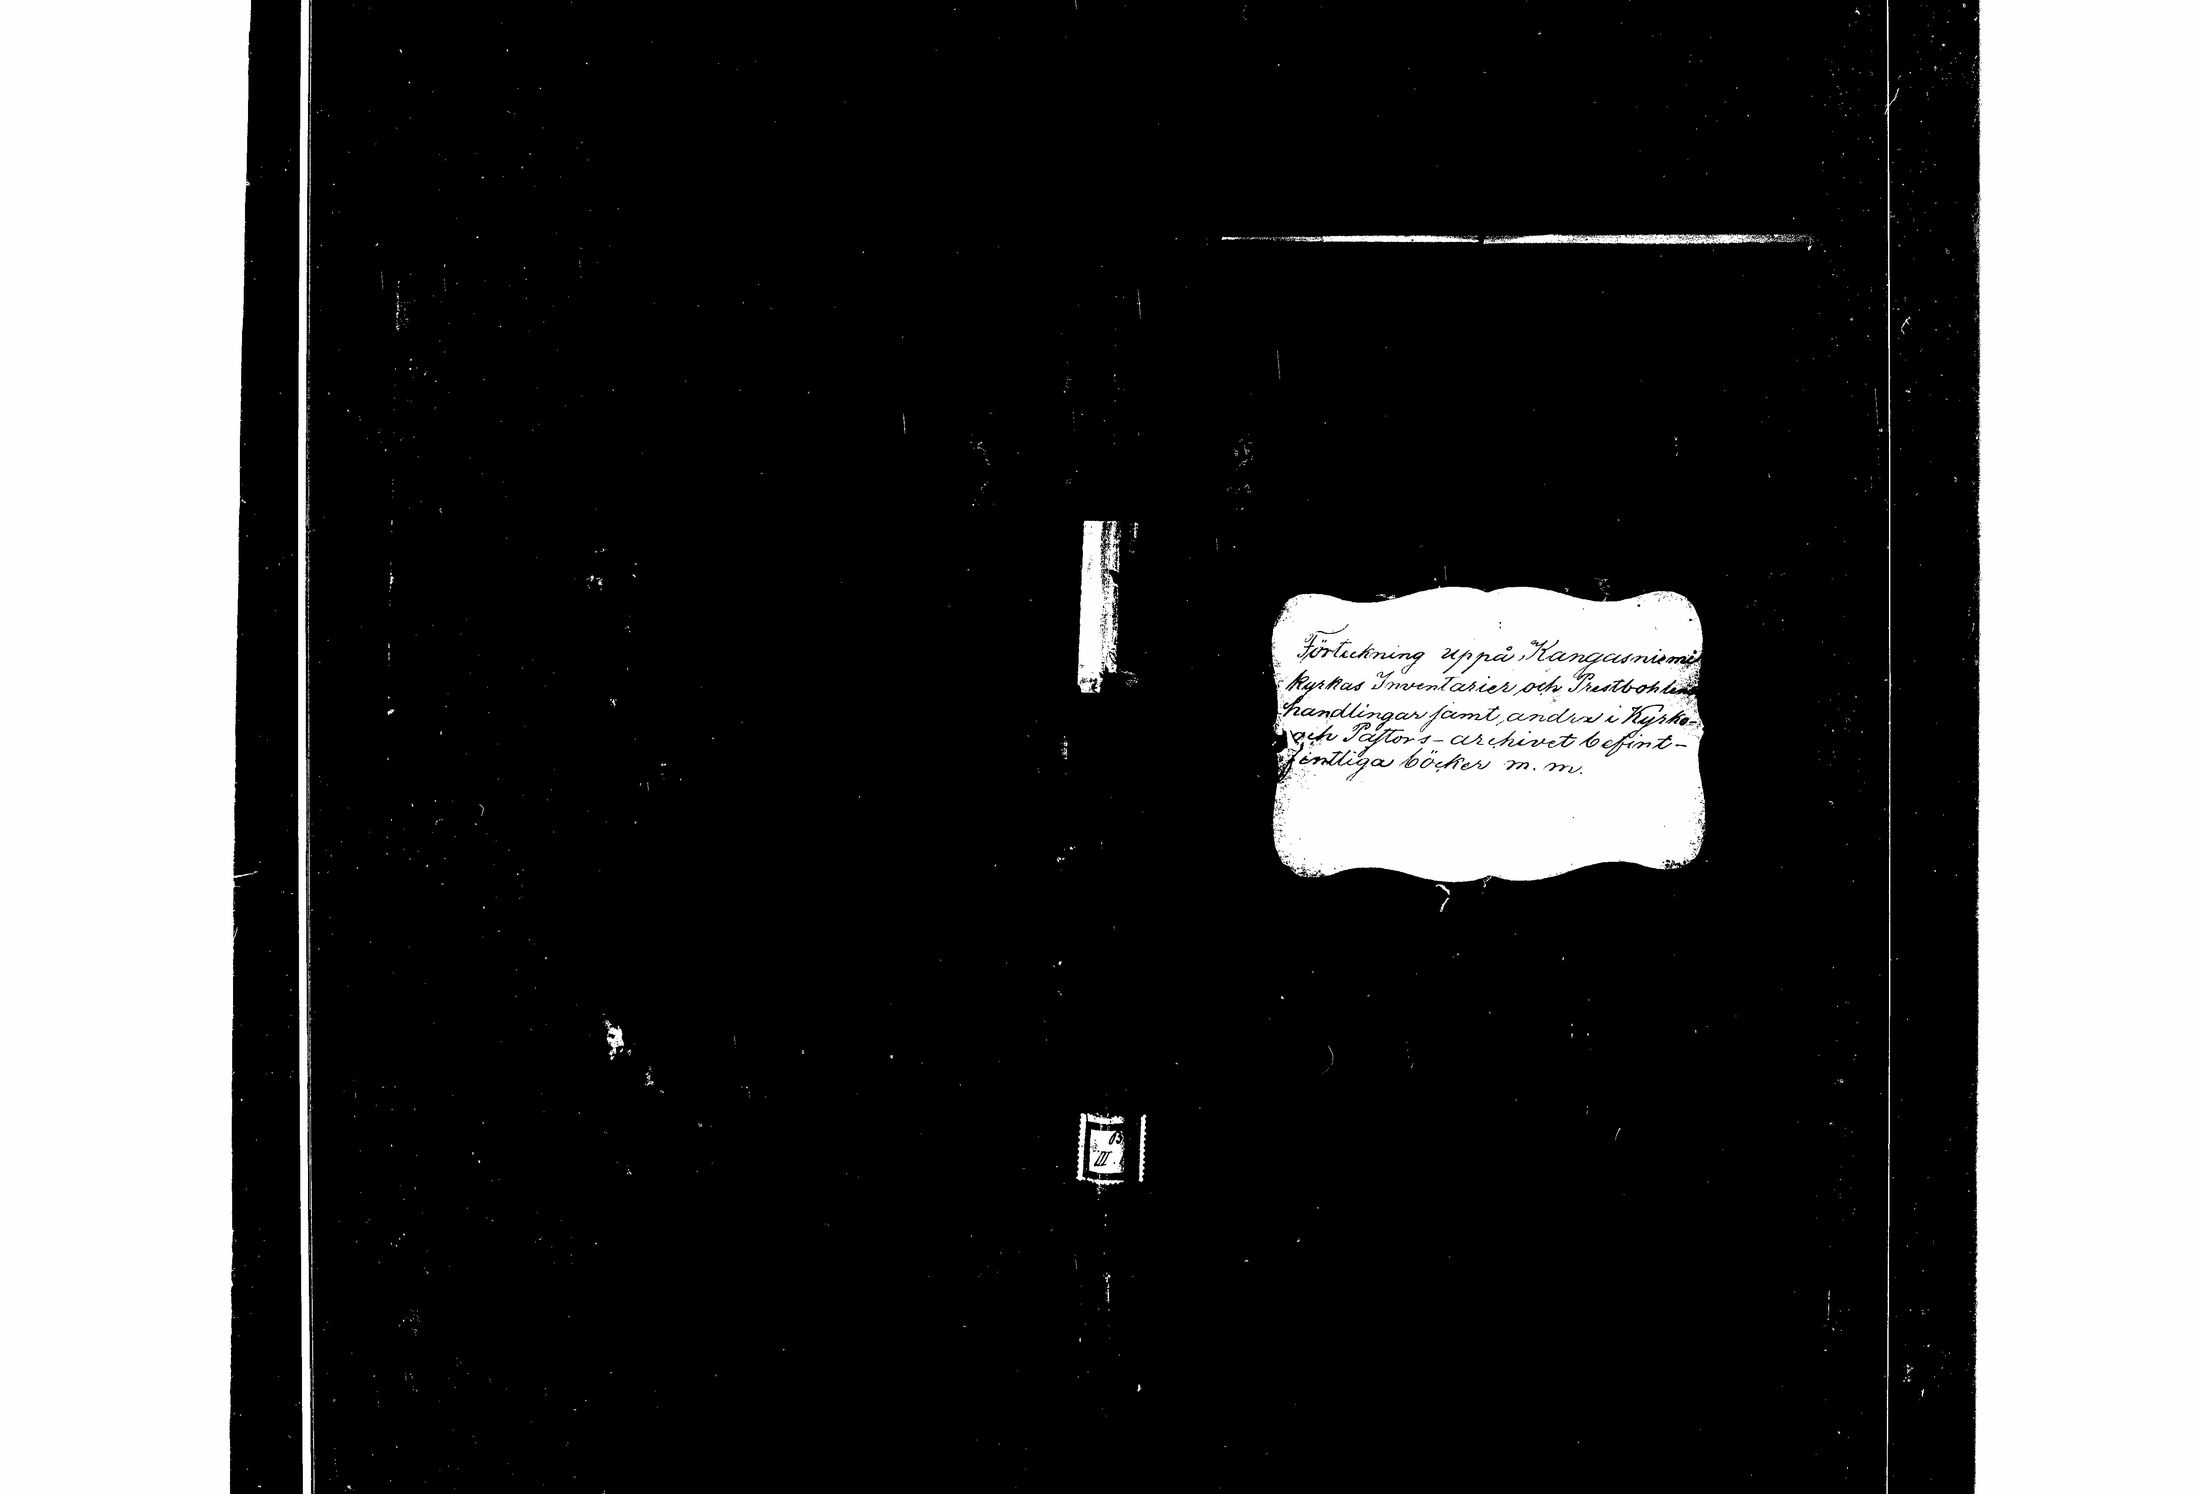 Förteckning uppå Kangasniemi
kyrkas Inventarier och Prestbohlens
handlingar samt andra i Kyrko-
och Pastors-archivet befint-
fintliga böcker m. m.
III